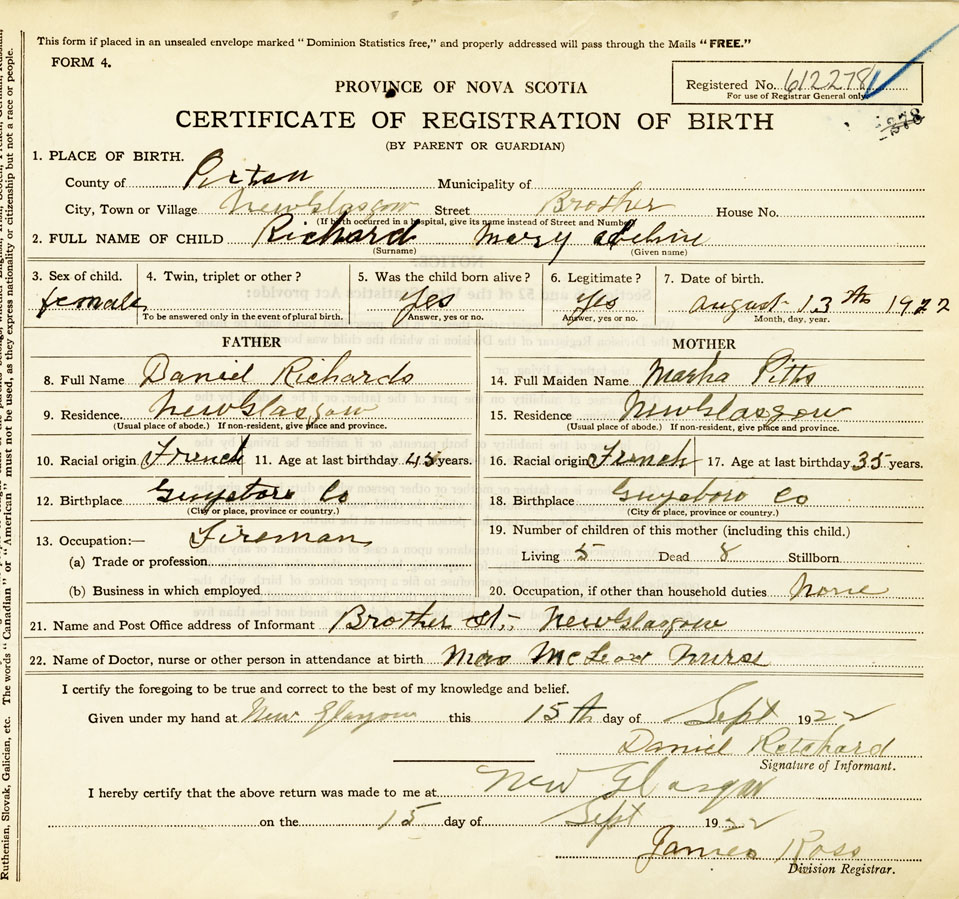 This form if placed in an unsealed envelope marked "Dominion Statistics free," and properly addressed will pass through the Mails "FREE."
FORM 4.
PROVINCE OF NOVA SCOTIA
Registered No. 612278
For use of Registrar General only
CERTIFICATE OF REGISTRATION OF BIRTH
(BY PARENT OR GUARDIAN)
1. PLACE OF BIRTH.
County of Pictou Municipality of
City, Town or Village New Glasgow Street Brother House No.
(If birth occurred in a hospital, give its name instead of Street and Number)
2. FULL NAME OF CHILD Richard Mary Adeline
(Surname) (Given name)
3. Sex of child. 4. Twin, triplet or other? 5. Was the child born alive? 6. Legitimate? 7. Date of birth.
female yes yes August 13th 1922
To be answered only in the event of plural birth. Answer, yes or no. Answer, yes or no. Month, day, year.
FATHER
8. Full Name Daniel Richards
9. Residence. New Glasgow
(Usual place of abode.) If non-resident, give place and province.
10. Racial origin French 11. Age at last birthday 45 years.
12. Birthplace Guysboro Co
(City or place, province or country.)
13. Occupation:— Fireman
(a) Trade or profession
(b) Business in which employed
MOTHER
14. Full Maiden Name Martha Pitts
15. Residence New Glasgow
(Usual place of abode.) If non-resident, give place and province.
16. Racial origin French 17. Age at last birthday 35 years.
18. Birthplace Guysboro Co
(City or place, province or country.)
19. Number of children of this mother (including this child.)
Living 5 Dead 8 Stillborn
20. Occupation, if other than household duties none
21. Name and Post Office address of Informant Brother St,- New Glasgow
22. Name of Doctor, nurse or other person in attendance at birth Mrs McLeod Nurse
I certify the foregoing to be true and correct to the best of my knowledge and belief.
Given under my hand at New Glasgow this 15th day of Sept 1922
Daniel Retchard
Signature of Informant.
I hereby certify that the above return was made to me at New Glasgow
on the 15 day of Sept 1922
James Ross
Division Registrar.
Ruthenian, Slovak, Galician, etc. The words "Canadian" or "American" must not be used, as they express nationality or citizenship but not a race or people.